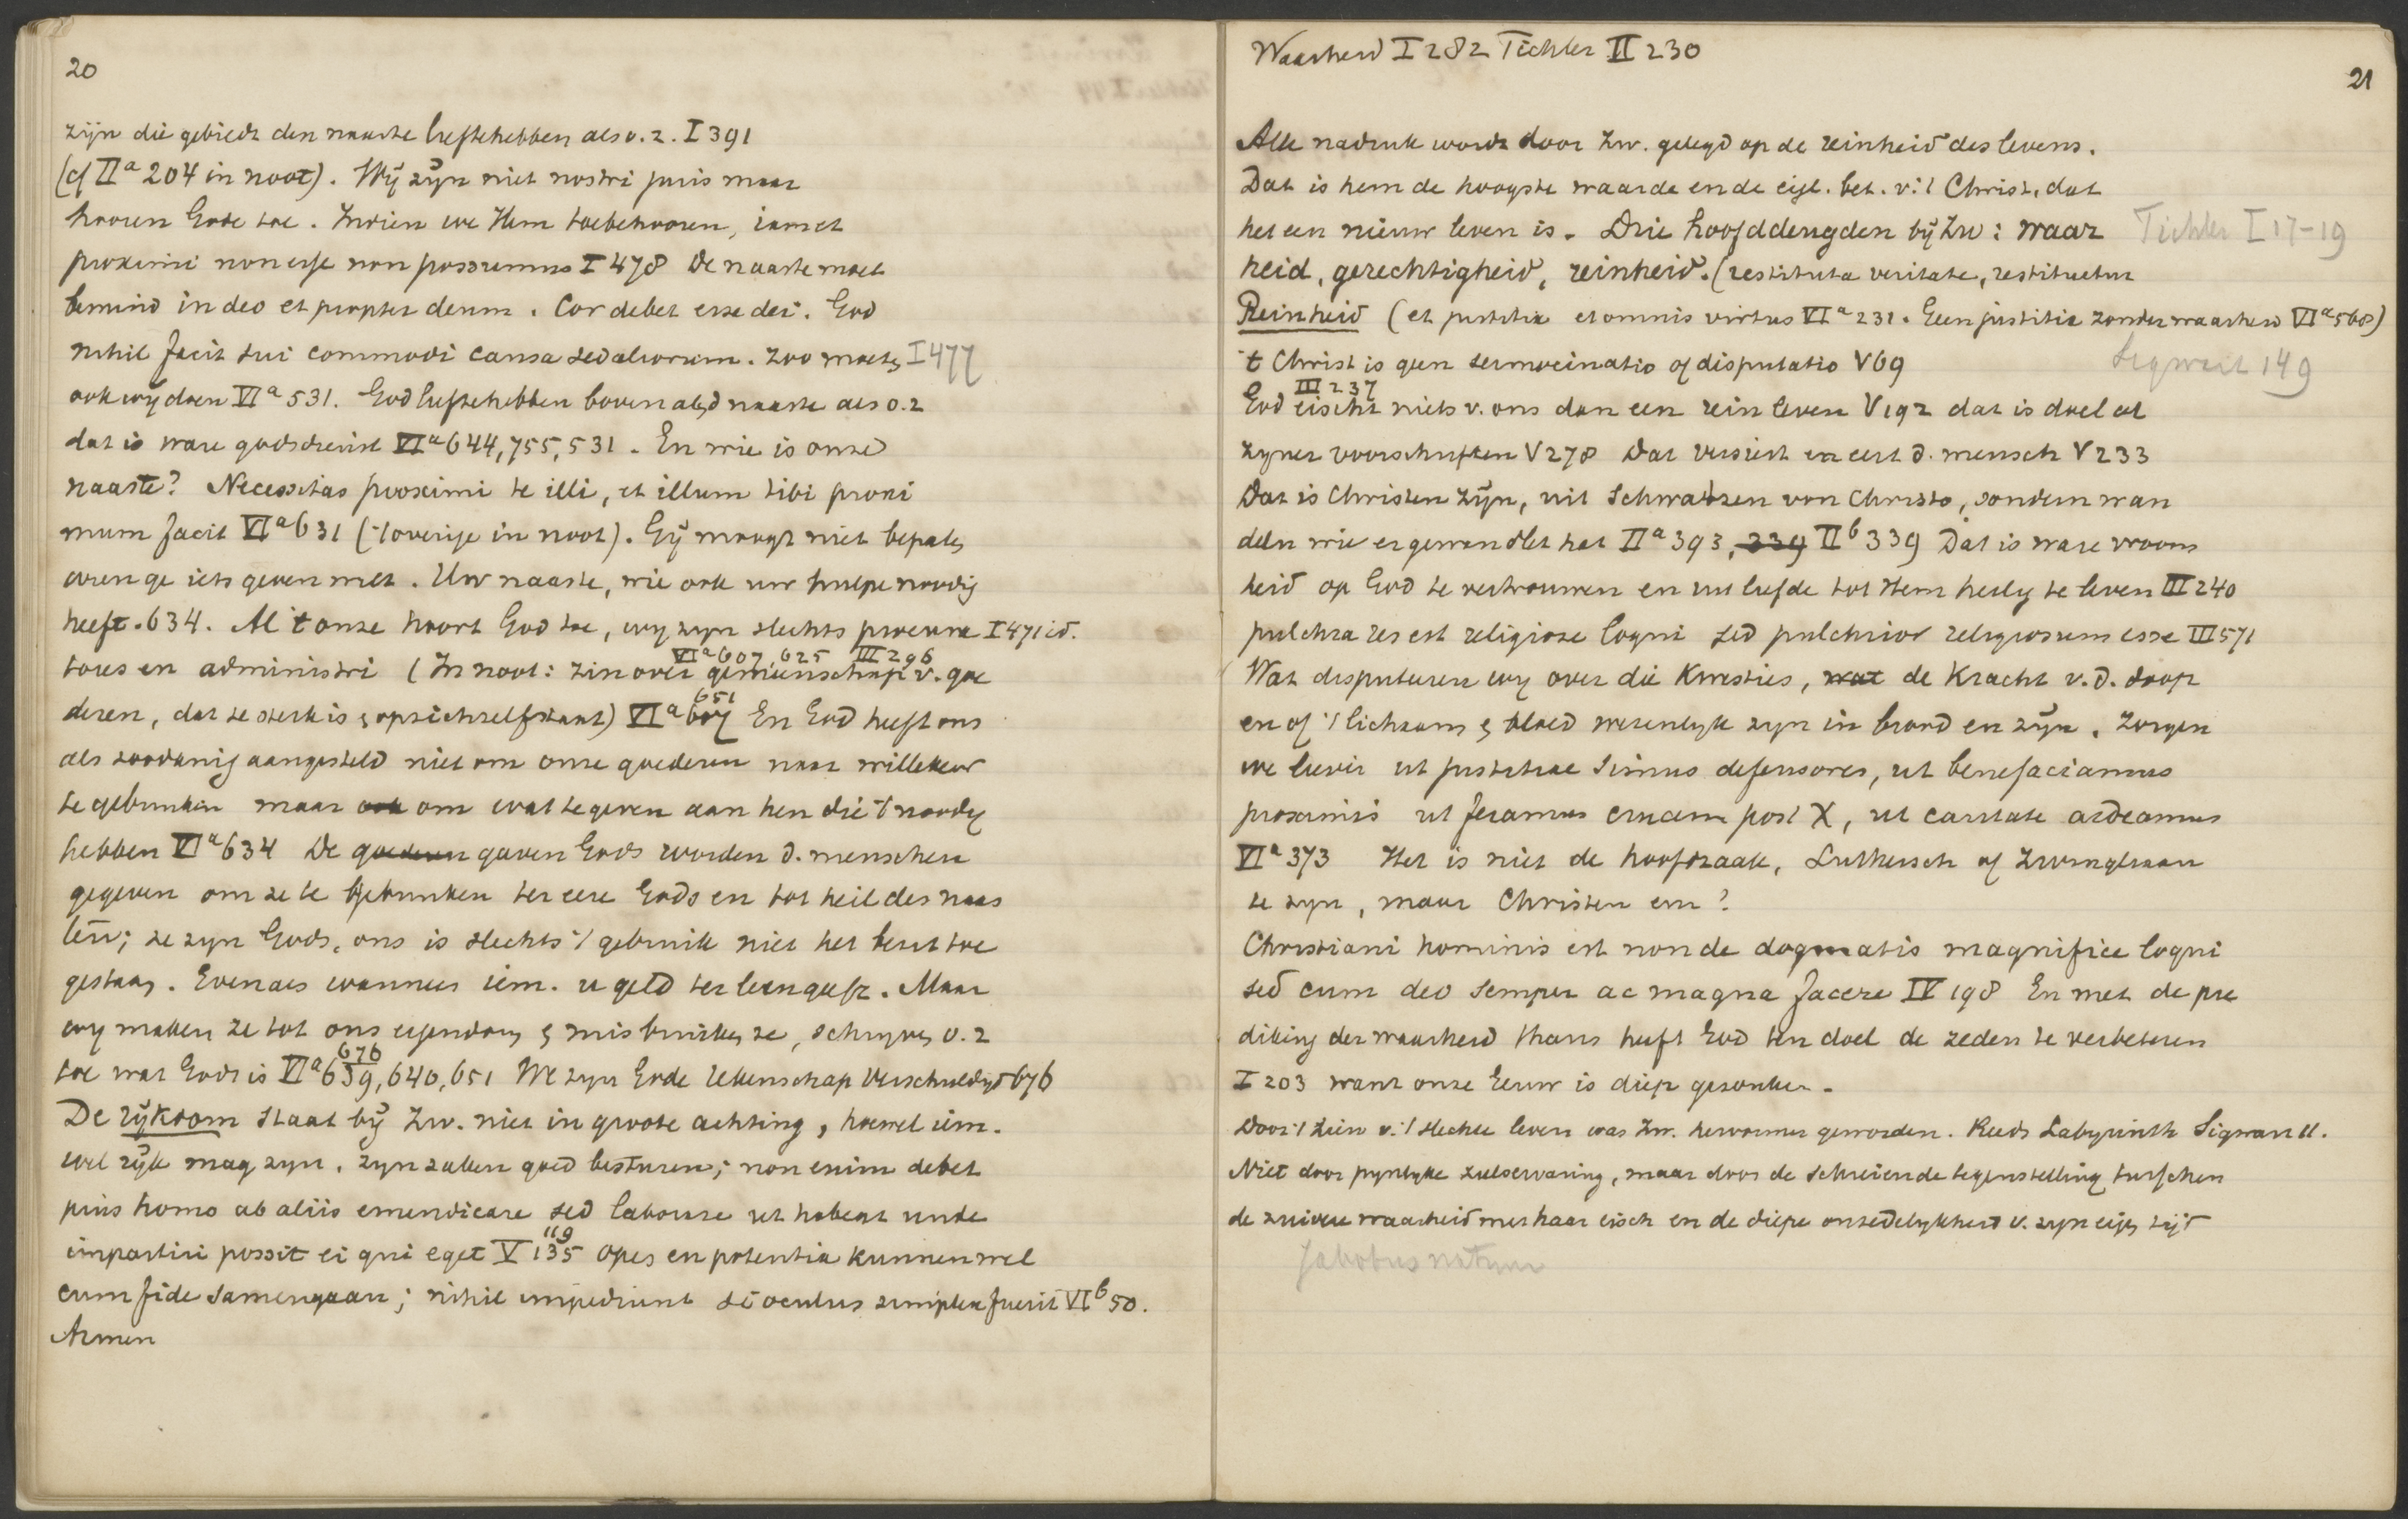 20
zijn die gebiedt den naaste liefhebben als o.z. I 391
(cf IIa 204 in noot). Wij zijn niet nostri juris maar
hooren Gode toe. Indien we Hem toebehooren, iam et
proximi non esse non possumus I 478 De naaste moet
bemind in deo et propter deum. Cor debet esse dei. God
nihil facit sui commodi causa sed aliorum. Zoo moeten I 477
ook wij doen VIa 531. God liefhebben boven al en d naaste als o.z
dat is ware godsdienst VIa 644, 755, 531. En wie is onze
naaste? Necessitas proximi te illi, et illum tibi proxi
mum facit VIa 631 ('t overige in noot). Gij moogt niet bepalen
wien ge iets geven moet. Uw naaste, wie ook uw hulpe noodig
heeft. 634. Al 't onze hoort God toe, wij zijn slechts procura I 471 id.
VIa 607, 625 III 296
tores en administri (In noot: zin over gemeenschap v. goe
651
deren, dat te sterk is & op zichzelf staat) VIa 607 En God heeft ons
als zoodanig aangesteld niet om onze goederen naar willekeur
te gebruiken maar ook om wat te geven aan hen die 't noodig
hebben VIa 634 De goederen gaven Gods worden d. menschen
gegeven om ze te gebruiken ter eere Gods en tot heil des naas
ten; ze zijn Gods, ons is slechts 't gebruik niet het bezit toe
gestaan. Evenals wanneer iem. u geld ter leen geeft. Maar
wij maken ze tot ons eigendom & misbruiken ze, schrijven o.z
676
toe wat Gods is VIa 639, 640, 651 We zijn Gode rekenschap verschuldigd 676
De rijkdom staat bij Zw. niet in groote achting, hoewel iem.
wel rijk mag zijn, zijn zaken goed besturen; non enim debet
pius homo ab aliis emendicare sed laborare ut habeat unde
119
impartiri possit ei qui eget V 135 opes en potentia kunnen wel
cum fide samengaan; nihil impediunt si oculus simplex fuerit VIb 50.
Armen
Waarheid I 282 Tichler II 230
21
Alle nadruk wordt door Zw. gelegd op de reinheid des levens.
Dat is hem de hoogste waarde en de eigl. bet. v. 't Christ. dat
het een nieuw leven is. Drie hoofddeugden bij Zw: waar Tichler I 17-19
heid, gerechtigheid, reinheid. (restituta veritate, restituetur
Reinheid (et justitia et omnis virtus VIa 231. Geen justitia zonder waarheid VIa 568)
't Christ is geen sermocinatio of disputatio V 69 Sigwart 149
III 237
God eischt niets v. ons dan een rein leven V 192 dat is doel al
zijner voorschriften V 278 Dat versiert en eert d. mensch V 233
Dat is Christen zijn, nit Schwatzen von Christo, sondern wan
deln wie er gewandlet hat IIa 393, 339 IIb 339 Dat is ware vroom
heid op God te vertrouwen en uit liefde tot Hem heilig te leven III 240
pulchra res est religiose loqui sed pulchrior religiosum esse III 571
Wat disputeren wij over die Kwesties, wat de Kracht v.d. doop
en of 't lichaam & bloed wezenlijk zijn in brood en wijn. Zorgen
we liever ut justitiae simus defensores, ut benefaciamus
proximis ut feramus crucem post X, ut caritate ardeamus
VIa 373 Het is niet de hoofdzaak, Luthersch of Zwingliaan
te zijn, maar Christen em?
Christiani hominis est non de dogmatis magnifice loqui
sed cum deo semper ac magna facere IV 198 En met de pre
diking der waarheid thans heeft God ten doel de zeden te verbeteren
I 203 want onze eeuw is diep gezonken.
Door 't zien v. 't slechte leven was Zw. hervormer geworden. Reeds Labyrinth Sigwart 11.
Niet door pijnlijke zielservaring, maar door de schreiende tegenstelling tusschen
de zuivere waarheid met haar eisch en de diepe onzedelijkheid v. zijn eigen tijd